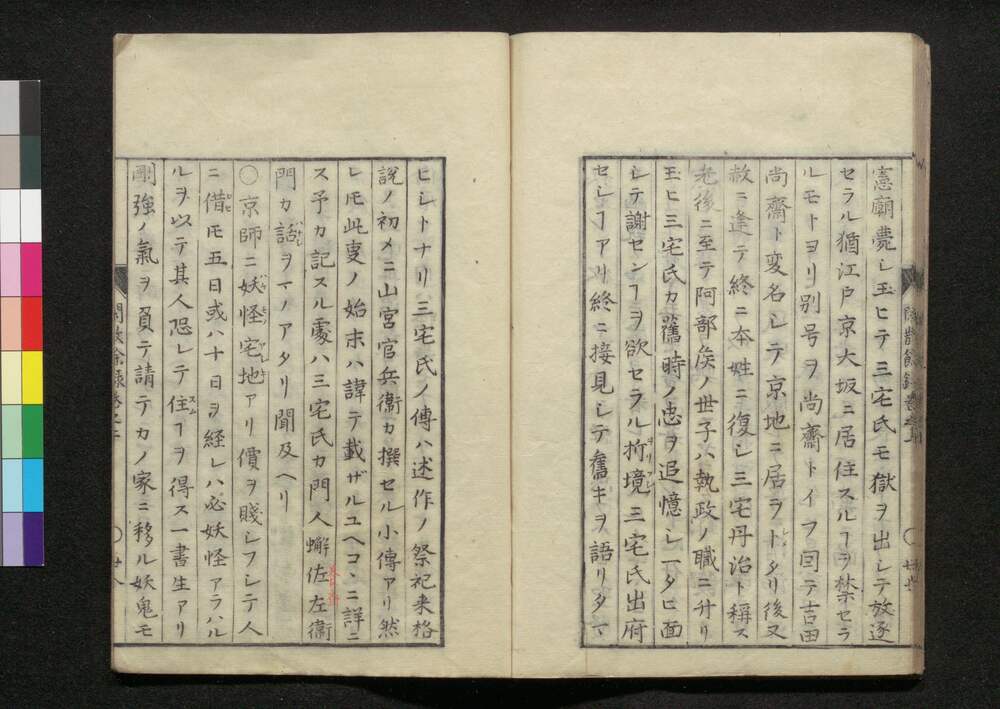 憲廟薨シ玉ヒテ三宅氏モ獄ヲ出シテ放逐
セラル猶江戸京大坂ニ居住スルヿヲ禁セラ
ルモトヨリ別号ヲ尚齋トイフ因テ吉田
尚齋ト変名シテ京地ニ居ラレタリ後又
赦ニ逢テ終ニ本姓ニ復シ三宅丹治ト稱ス
老後ニ至テ阿部矦ノ世子ハ執政ノ職ニ升リ
玉ヒ三宅氏カ舊時ノ忠ヲ追憶シ一タヒ面
シテ謝センヿヲ欲セラル折境三宅氏出府
セシヿアリ終ニ接見シテ舊キヲ語リタマ
ヒシトナリ三宅氏ノ傳ハ述作ノ祭祀来格
説ノ初メニ山宮官兵衞カ撰セル小傳アリ然
レモ此叓ノ始末ハ諱テ載ザルユヘコヽニ詳ニ
ス予カ記スル處ハ三宅氏カ門人蠏佐左衞
門カ話ヲマノアタリ聞及ヘリ
〇京師ニ妖怪宅地アリ價ヲ賤シフシテ人
ニ借モ五日或ハ十日ヲ経レハ必妖怪アラハル
ルヲ以テ其人恐レテ住ヿヲ得ス一書生アリ
剛強ノ氣ヲ負テ請テカノ家ニ移ル妖鬼モ
閑散余録巻之下
〇 廿八